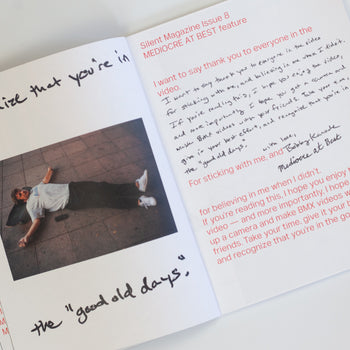 ize that you're in
the "good old days."
Silent Magazine Issue 8
MEDIOCRE AT BEST feature
I want to say thank you to everyone in the
video.
I want to say thank you to everyone in the video
for sticking with me, and believing in me when I didn't.
If you're reading this, I hope you enjoy the video,
and more importantly I hope you get a camera and
make BMX videos with your friends. Take your time,
give it your best effort, and recognize that you're in
the "good old days."
with love,
For sticking with me, and
Mediocre at Best
for believing in me when I didn't.
If you're reading this, I hope you enjoy
video — and more importantly, I hope
up a camera and make BMX videos w
friends. Take your time, give it your
and recognize that you're in the goo